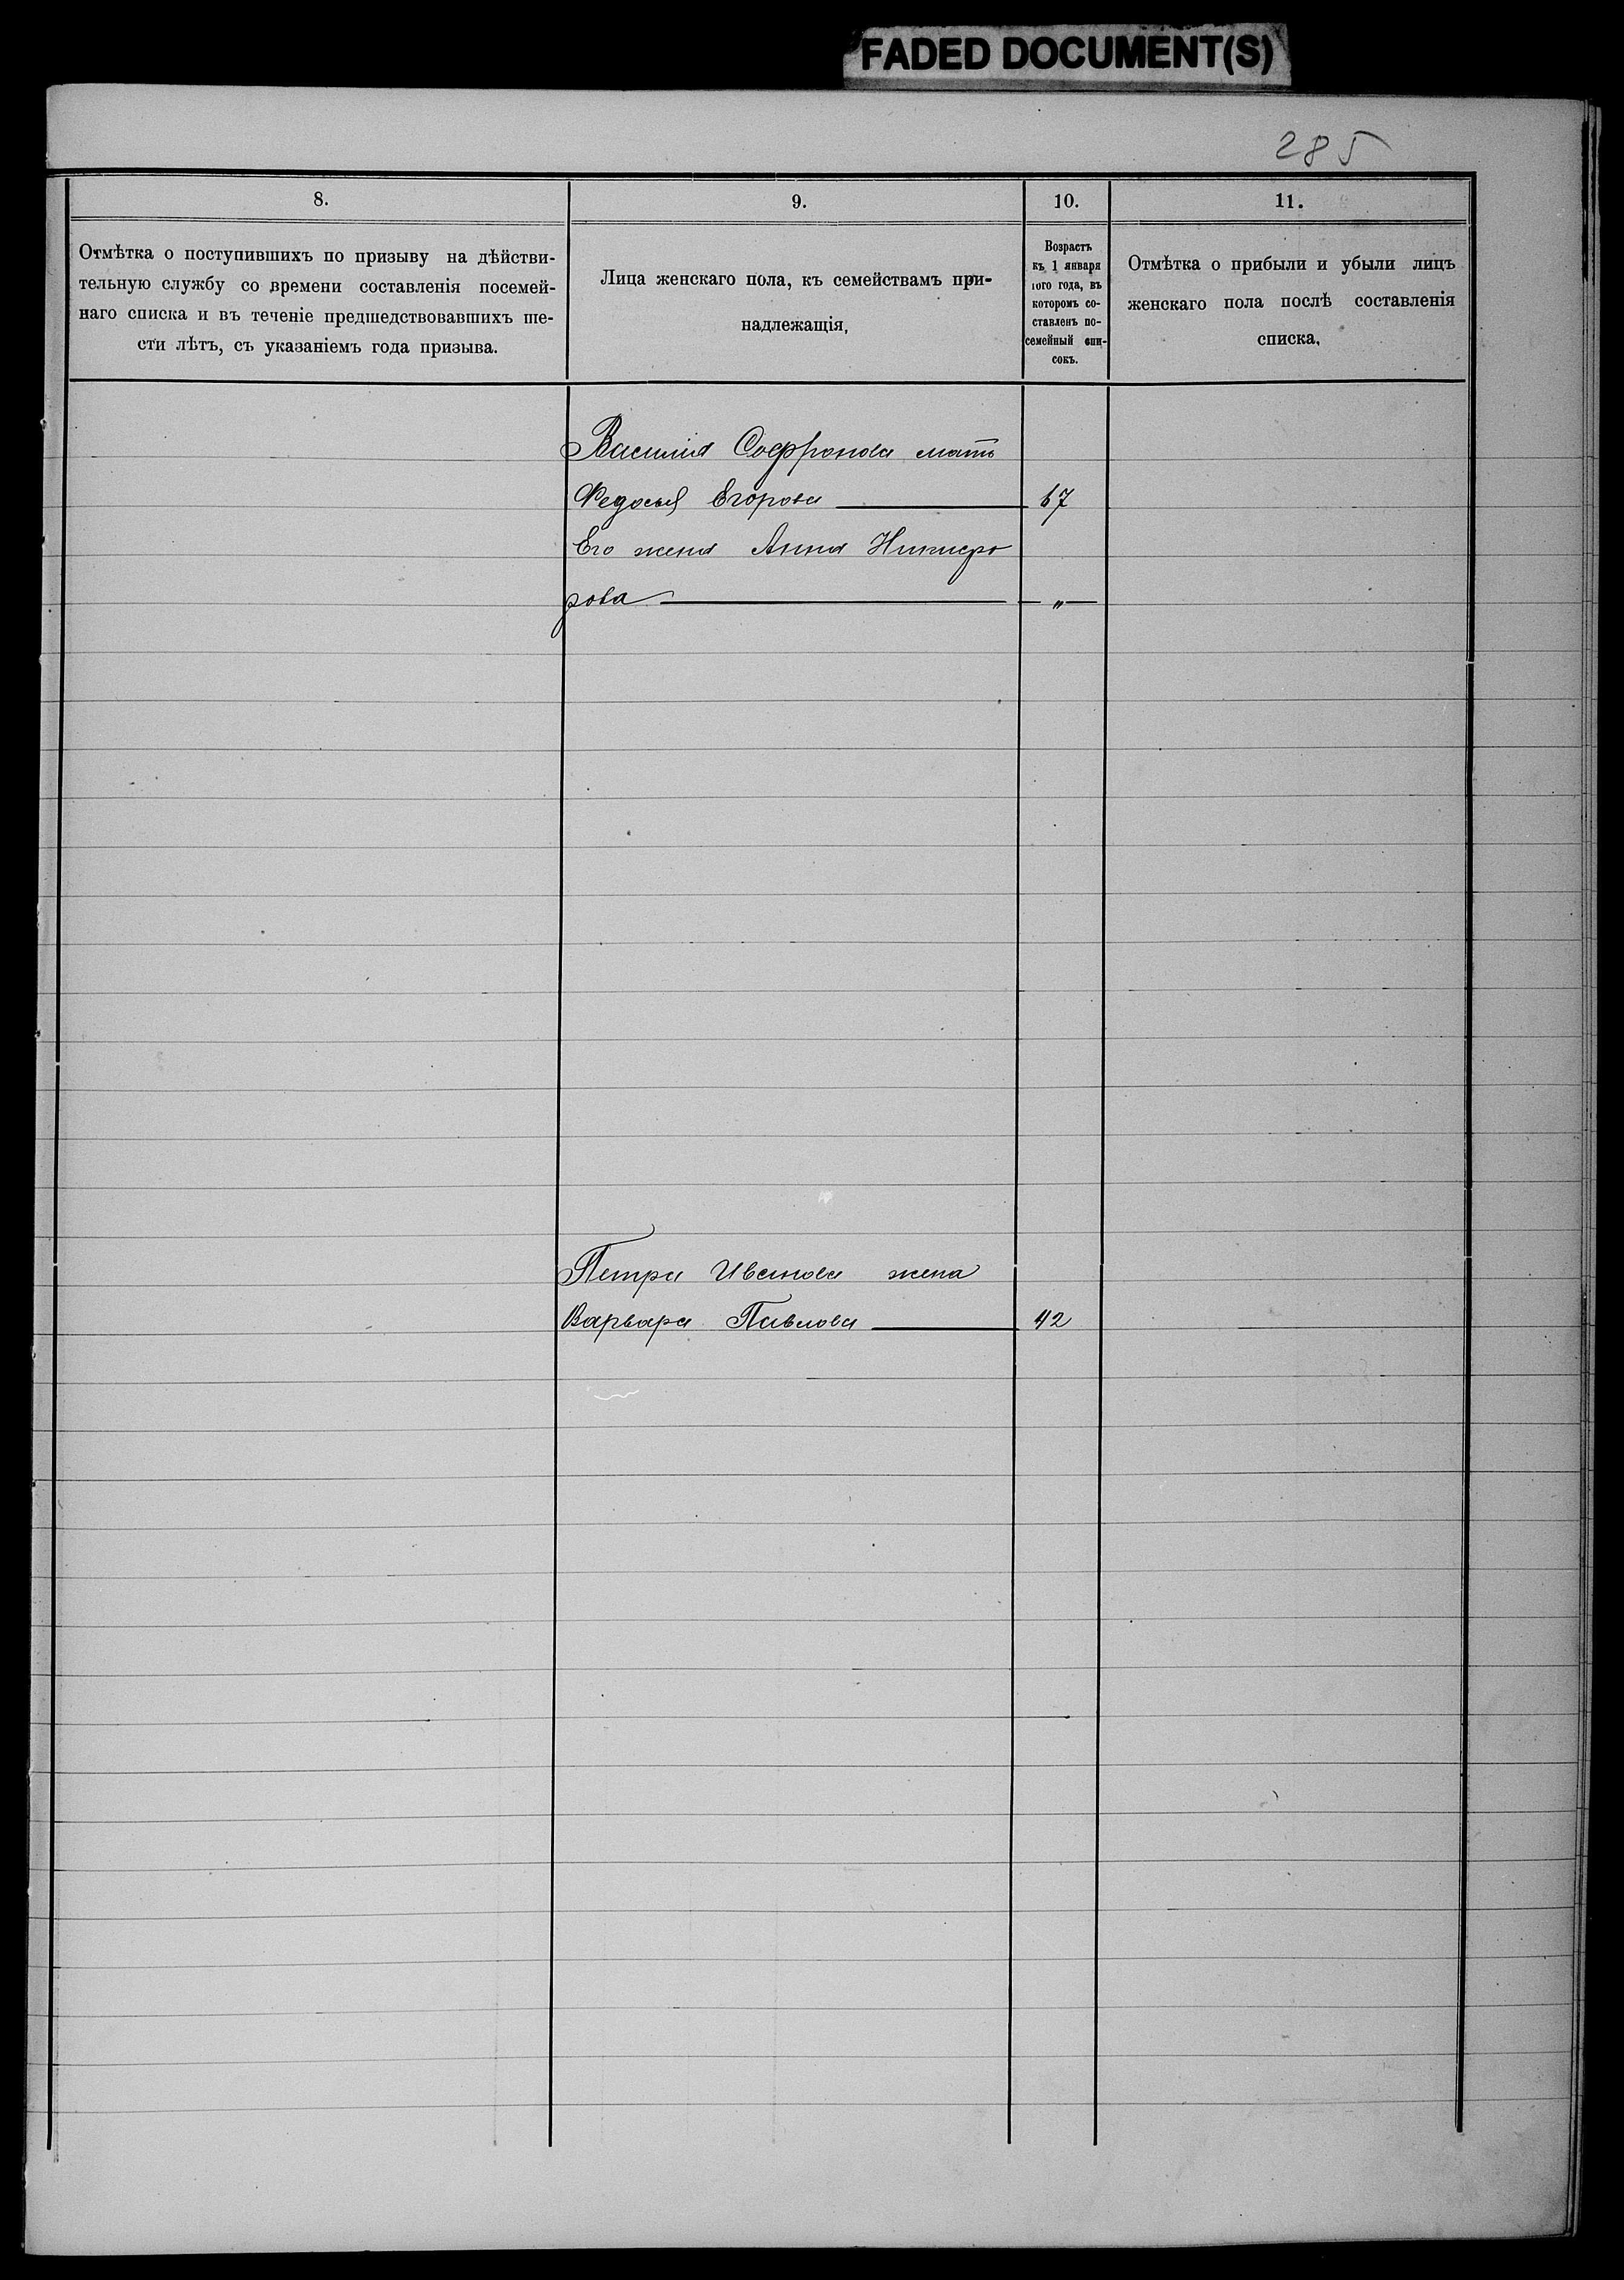 FADED DOCUMENT(S)
285
8.
9.
10.
11.
Отмѣтка о поступившихъ по призыву на дѣйстви-
тельную службу со времени составленія посемей-
наго списка и въ теченіе предшедствовавшихъ ше-
сти лѣтъ, съ указаніемъ года призыва.
Лица женскаго пола, къ семействамъ при-
надлежащія,
Возрастъ
къ 1 января
того года, въ
которомъ со-
ставленъ по-
семейный спи-
сокъ.
Отмѣтка о прибыли и убыли лицъ
женскаго пола послѣ составленія
списка,
Василія Софронова мать
Федосья Егорова 67
Его жена Анна
рова „
Петра Иванова жена
Варвара Павлова 42